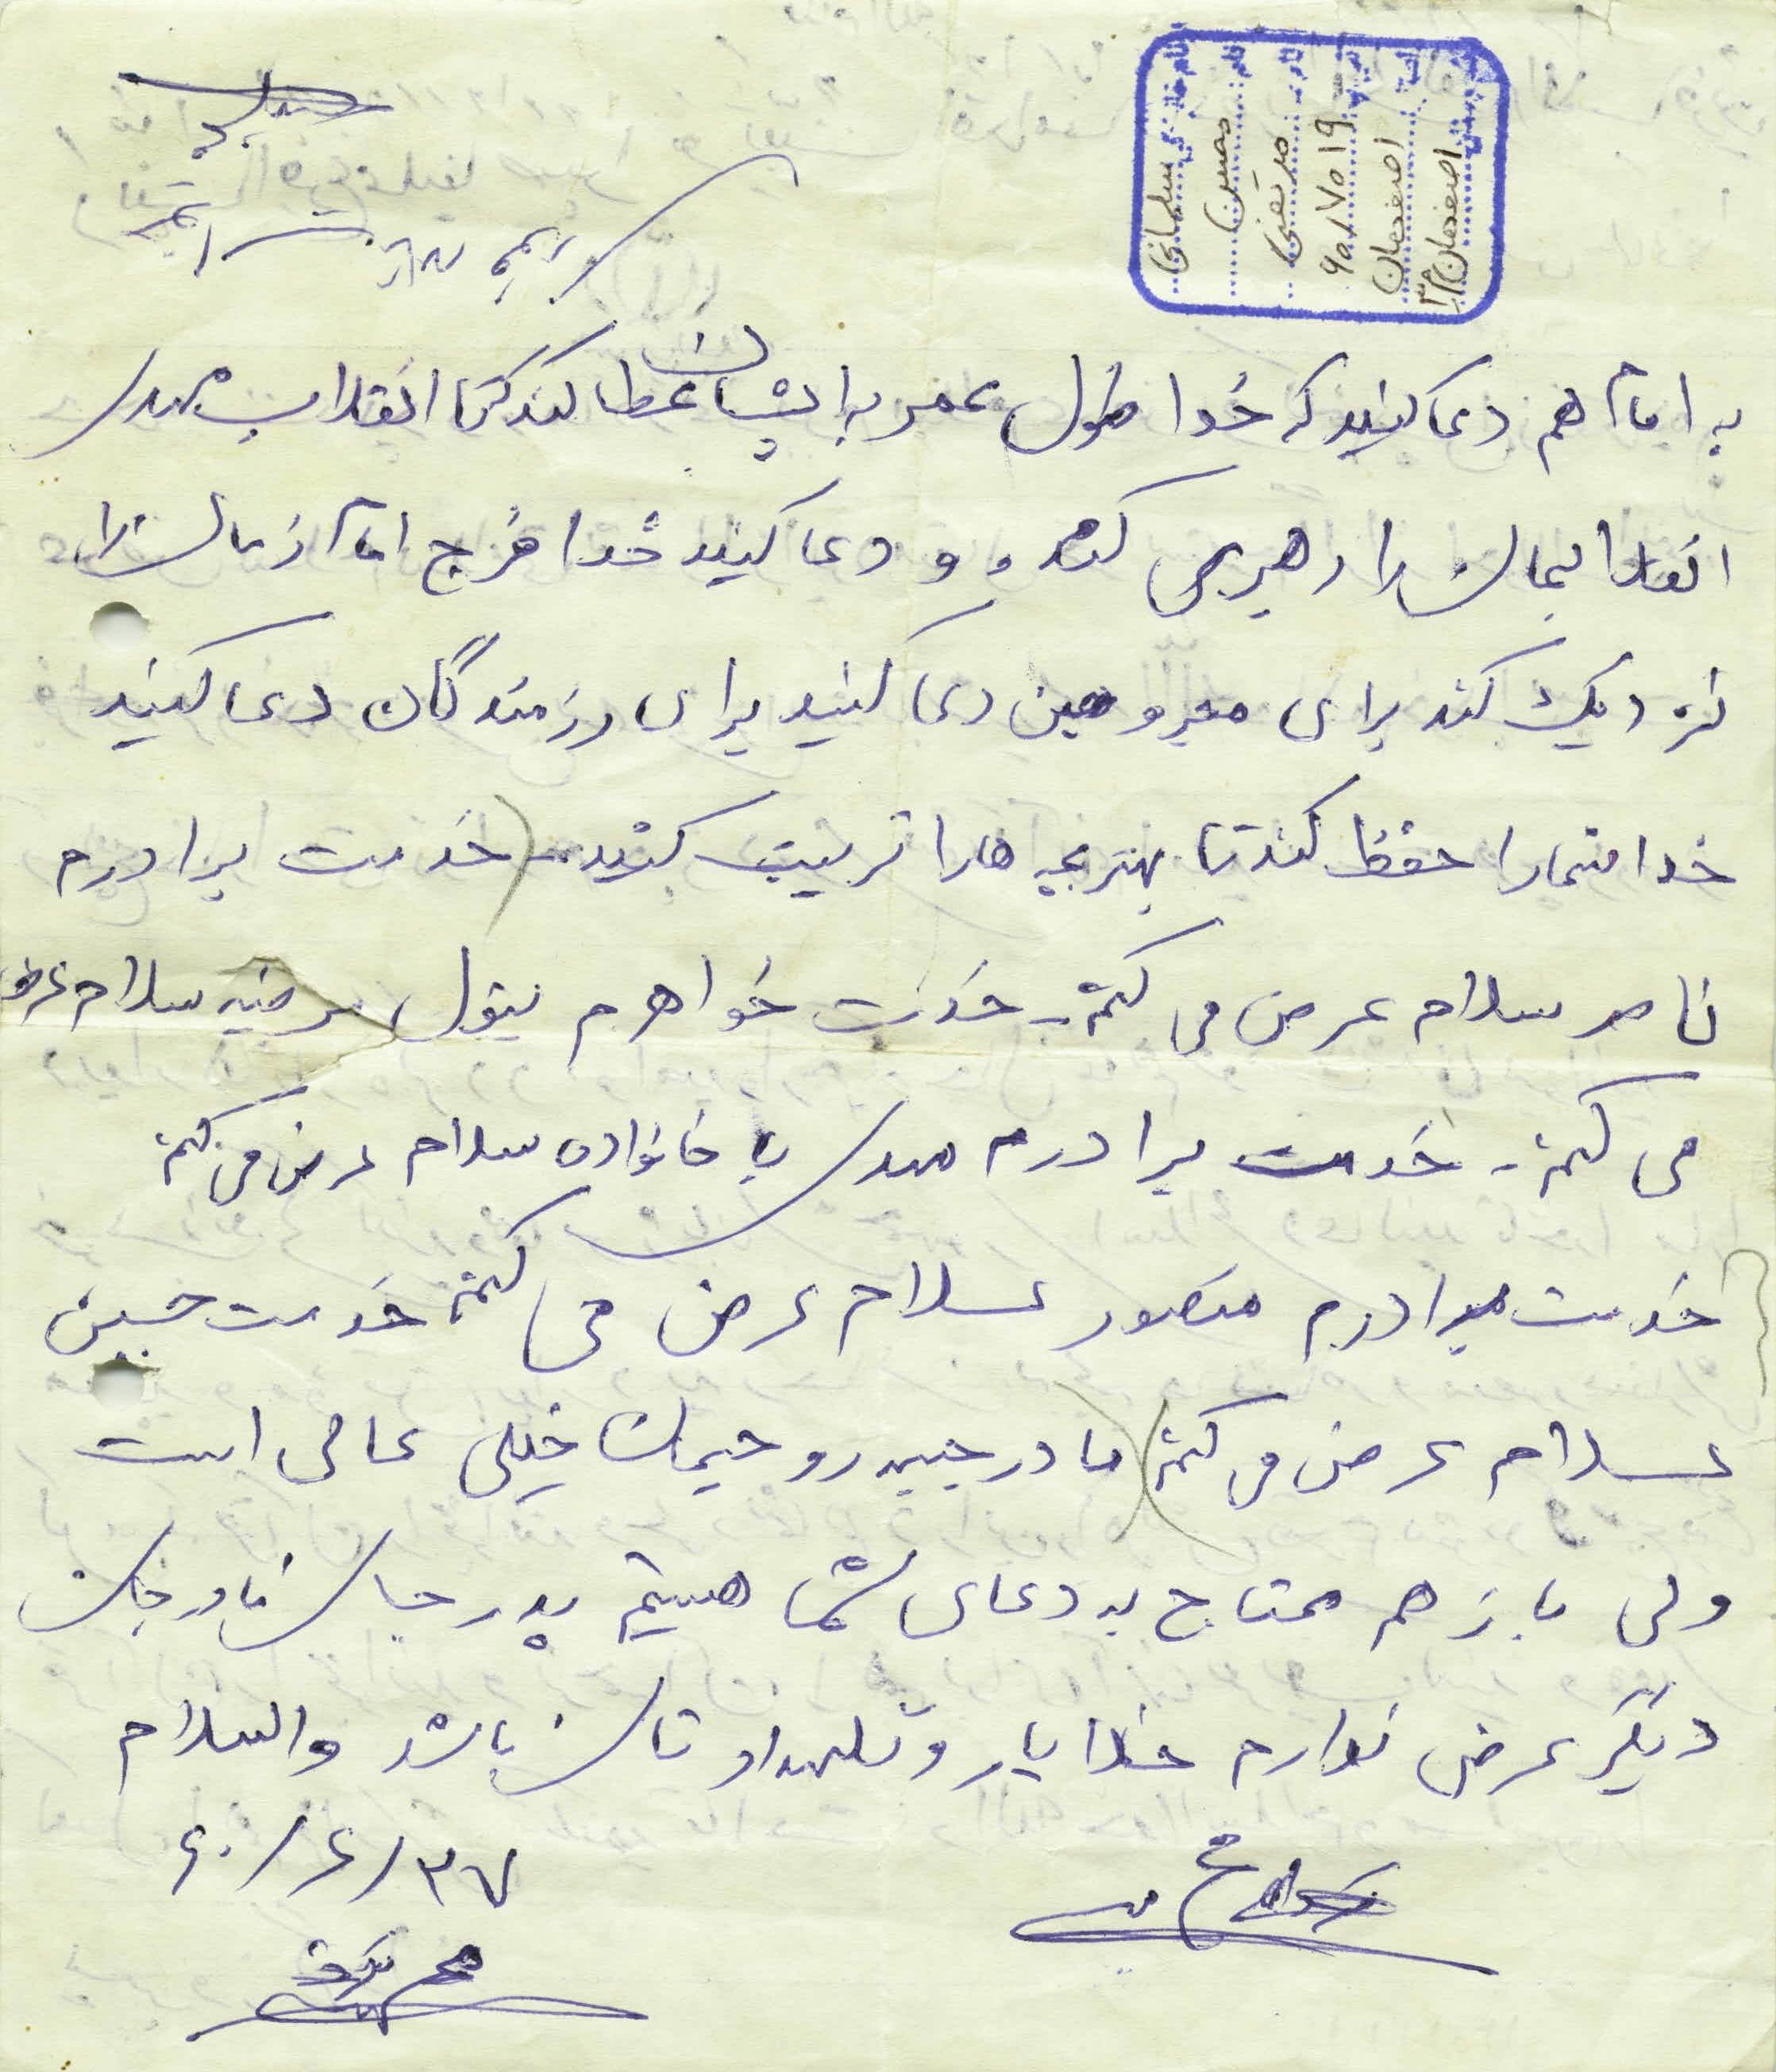 سلیمانی
حسین
مرتضی
۹۵۸۷۵۱۹
اصفهان
اصفهان
به امام هم دعا کنید که خدا طول عمر به ایشان عطا کند که تا انقلاب مهدی
انقلابمان را رهبری کند و و دعا کنید خدا فرج امام زمان را
نزدیک کند برای مجروحین دعا کنید برای رزمندگان دعا کنید
خدا شما را حفظ کند تا بهتر بچه ها را تربیت کنید - خدمت برادرم
ناصر سلام عرض می کنم - خدمت خواهرم بتول مرضیه سلام عرض
می کنم - خدمت برادرم مهدی با خانواده سلام عرض می کنم
خدمت برادرم منصور سلام عرض می کنم خدمت حسین
سلام عرض می کنم مادر جبهه روحیمان خیلی عالی است
ولی باز هم محتاج به دعای شما هستیم پدر جان مادر جان
دیگر عرض ندارم خدا یار و نگهدارتان باشد والسلام
۶۰/۶/۲۷